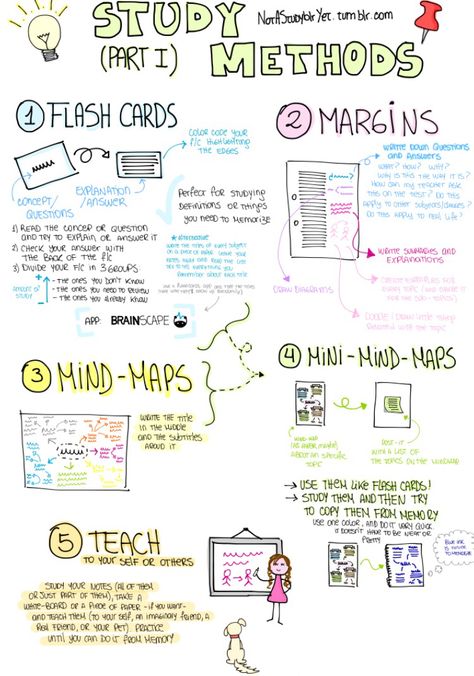 STUDY
NotAStudyblrYet.tumblr.com
(PART I)
METHODS
1 FLASH CARDS
COLOR CODE YOUR
F/C HIGHLIGHTING
THE EDGES
CONCEPT/
QUESTIONS
EXPLANATION
/ANSWER
Perfect for studying
definitions or things
you need to memorize
1) READ THE CONCEPT OR QUESTION
AND TRY TO EXPLAIN OR ANSWER IT
2) CHECK YOUR ANSWER WITH
THE BACK OF THE F/C
3) DIVIDE YOUR F/C IN 3 GROUPS
AMOUNT OF
STUDY
- THE ONES YOU DON'T KNOW
- THE ONES YOU NEED TO REVIEW
- THE ONES YOU ALREADY KNOW
* ALTERNATIVE
APP: BRAINSCAPE
2 MARGINS
WRITE DOWN QUESTIONS
AND ANSWERS
WHAT? HOW? WHY?
WHY IS THIS THE WAY IT IS?
HOW CAN MY TEACHER ASK
THIS ON THE TEST? DO THIS
APPLY TO OTHER SUBJECTS/ISSUES?
DO THIS APPLY TO REAL LIFE?
WRITE SUMMARIES AND
EXPLANATIONS
CREATE EXAMPLES FOR
EVERY TOPIC
DRAW DIAGRAMS
DOODLE - DRAW LITTLE STUFF
RELATED WITH THE TOPIC
3 MIND-MAPS
WRITE THE TITLE
IN THE MIDDLE
AND THE SUBTITLES
AROUND IT
4 MINI-MIND-MAPS
MIND MAP
ABOUT AN SPECIFIC
TOPIC
POST-IT
WITH A LIST OF
THE TOPICS ON THE MINDMAP
→ USE THEM LIKE FLASH CARDS!
→ STUDY THEM AND THEN TRY
TO COPY THEM FROM MEMORY
USE ONE COLOR, AND DO IT VERY QUICK
IT DOESN'T HAVE TO BE NEAT OR
PRETTY
BLUE INK
IS EASIER
TO MEMORIZE
5 TEACH
TO YOUR SELF OR OTHERS
STUDY YOUR NOTES (ALL OF THEM
OR JUST PART OF THEM), TAKE A
WHITE-BOARD OR A PIECE OF PAPER - IF YOU WANT -
AND TEACH THEM (TO YOUR SELF, AN IMAGINARY FRIEND, A
REAL FRIEND, OR YOUR PET). PRACTICE
UNTIL YOU CAN DO IT FROM MEMORY